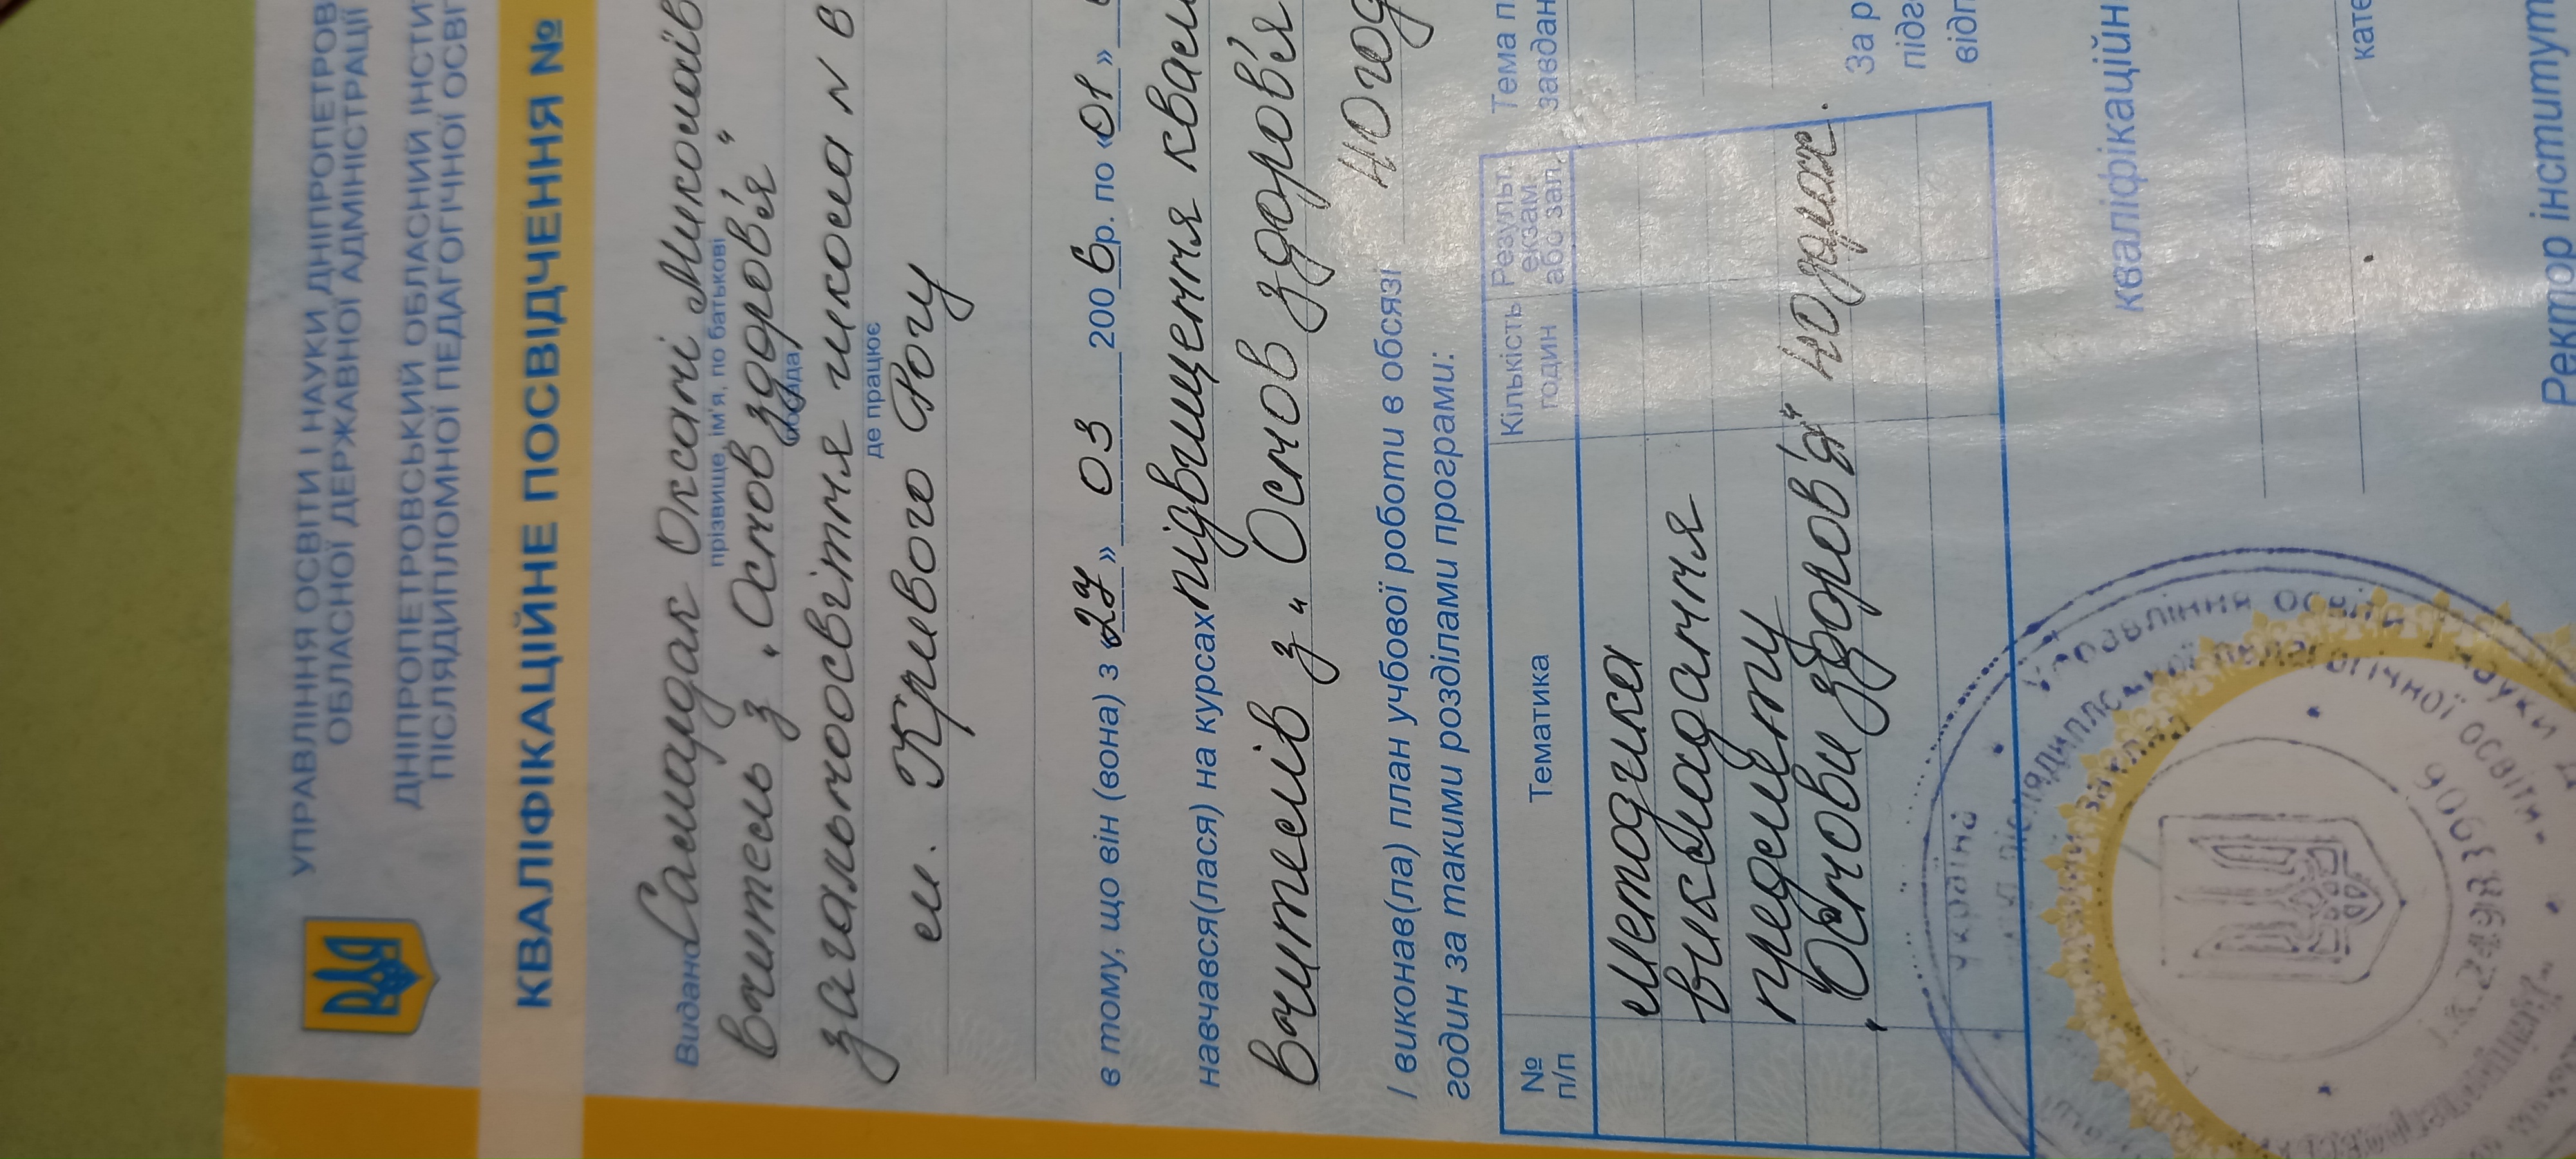 УПРАВЛІННЯ ОСВІТИ І НАУКИ ДНІПРОПЕТРОВ
ОБЛАСНОЇ ДЕРЖАВНОЇ АДМІНІСТРАЦІЇ
ДНІПРОПЕТРОВСЬКИЙ ОБЛАСНИЙ ІНСТИТ
ПІСЛЯДИПЛОМНОЇ ПЕДАГОГІЧНОЇ ОСВІТ
КВАЛІФІКАЦІЙНЕ ПОСВІДЧЕННЯ №
Видано Самандак Оксані Миколаїв
прізвище, ім'я, по батькові
вчитель з „Основ здоров'я"
посада
загальноосвітня школа № 8
де працює
м. Кривого Рогу
в тому, що він (вона) з «27» 03 2006 р. по «01»
навчався(лася) на курсах підвищення квалі
вчителів з „Основ здоров'я
І виконав(ла) план учбової роботи в обсязі 40 год
годин за такими розділами програми:
№ п/п Тематика Кількість годин Результ. екзам. або зал.
методика
викладання
предмету
„Основи здоров'я" 40 зарах.
Тема п
завдан
За р
підг
відп
кваліфікаційн
кате
Ректор інститут
Україна
Управління освіти і науки
післядипломної педагогічної освіти
24983906